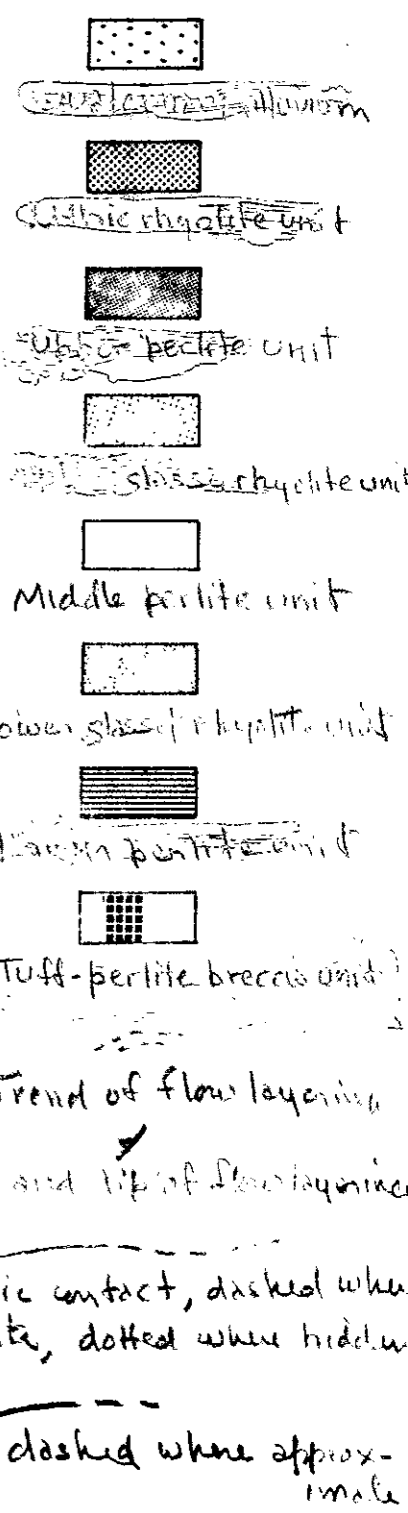 alluvium
Lithic rhyolite unit
Upper perlite unit
glassy rhyolite unit
Middle perlite unit
ower glassy rhyolite unit
perlite unit
Tuff-perlite breccia unit
Trend of flow layering
and dip of flow layering
ic contact, dashed whe
dotted where hidden
dashed where approx-
imate